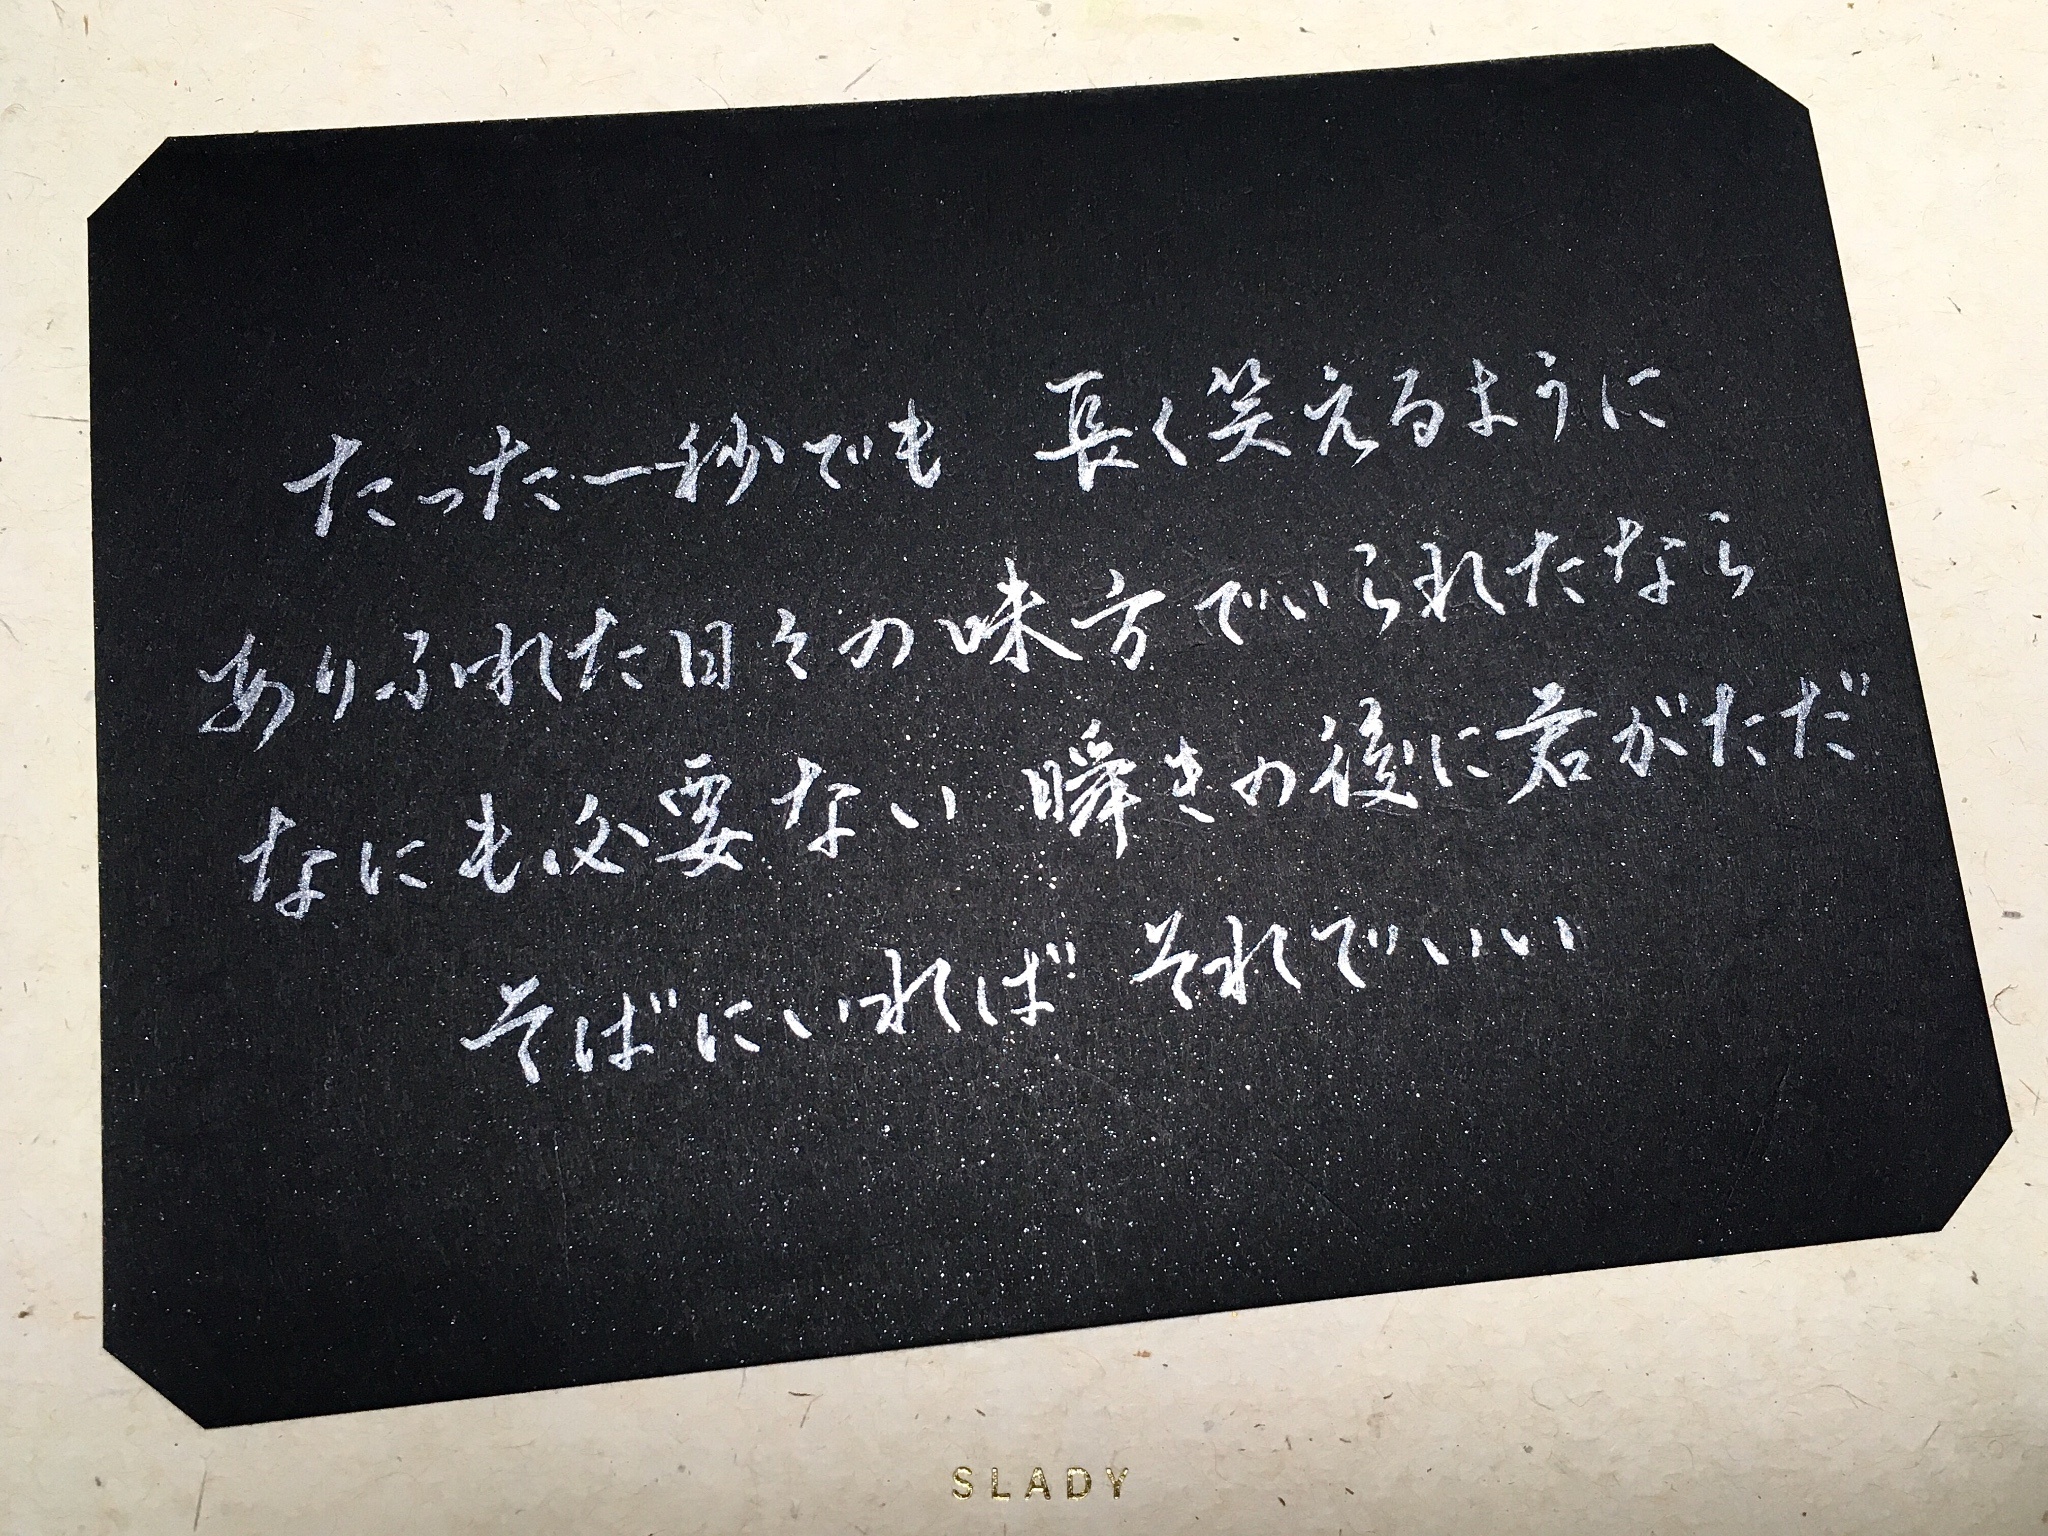 たった一秒でも 長く笑えるように
ありふれた日々の味方でいられたなら
なにも必要ない 瞬きの後に君がただ
そばにいれば それでいい
SLADY